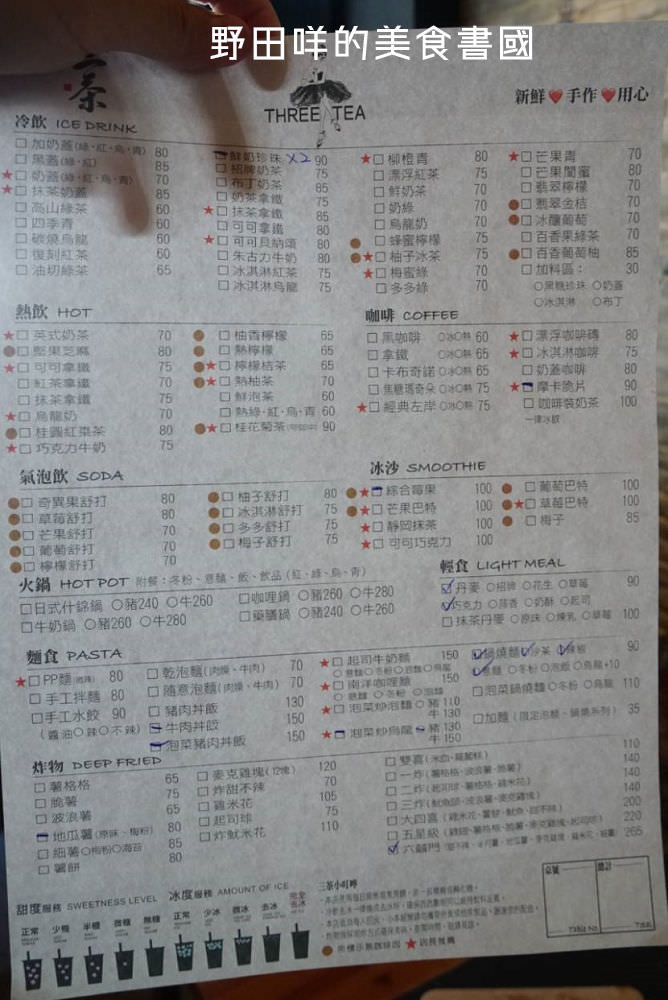 野田咩的美食書國
三茶
THREE TEA
新鮮❤手作❤用心
冷飲 ICE DRINK
加奶蓋(綠·紅·烏·青) 80
黑蓋(綠·紅) 85
★ 奶蓋(綠·紅·烏·青) 70
★ 抹茶奶蓋 85
高山綠茶 60
四季青 60
碳燒烏龍 60
復刻紅茶 60
油切綠茶 65
鮮奶珍珠 X2 90
招牌奶茶 75
布丁奶茶 75
奶茶拿鐵 75
★ 抹茶拿鐵 85
可可拿鐵 80
★ 可可貝納頌 80
朱古力牛奶 80
冰淇淋紅茶 75
冰淇淋烏龍 75
★ 柳橙青 80
漂浮紅茶 75
鮮奶茶 70
奶綠 70
烏龍奶 70
蜂蜜檸檬 75
★ 柚子冰茶 75
★ 梅蜜綠 70
多多綠 70
★ 芒果青 70
芒果閨蜜 80
翡翠檸檬 70
翡翠金桔 70
冰釀葡萄 70
百香果綠茶 70
百香葡萄柚 85
加料區： 30
○黑糖珍珠 ○奶蓋
○冰淇淋 ○布丁
熱飲 HOT
★ 英式奶茶 70
堅果芝麻 80
★ 可可拿鐵 75
紅茶拿鐵 70
抹茶拿鐵 75
★ 烏龍奶 70
桂圓紅棗茶 80
★ 巧克力牛奶 75
柚香檸檬 65
熱檸檬 65
★ 檸檬桔茶 65
★ 熱柚茶 70
鮮泡茶 60
熱綠·紅·烏·青 60
★ 桂花菊茶 90
咖啡 COFFEE
黑咖啡 ○冰○熱 60
拿鐵 ○冰○熱 65
卡布奇諾 ○冰○熱 65
焦糖瑪奇朵 ○冰○熱 75
★ 經典左岸 ○冰○熱 75
★ 漂浮咖啡磚 80
★ 冰淇淋咖啡 75
奶蓋咖啡 80
★ 摩卡脆片 90
咖啡裝奶茶 100
一律冰飲
氣泡飲 SODA
奇異果舒打 80
草莓舒打 80
芒果舒打 70
葡萄舒打 70
檸檬舒打 70
柚子舒打 80
冰淇淋舒打 75
多多舒打 75
梅子舒打 75
冰沙 SMOOTHIE
★ 綜合莓果 100
★ 芒果巴特 100
★ 靜岡抹茶 100
★ 可可巧克力 100
葡萄巴特 100
★ 草莓巴特 100
梅子 85
火鍋 HOT POT 附餐：冬粉、意麵、飯、飲品(紅、綠、烏、青)
日式什錦鍋 ○豬240 ○牛260
牛奶鍋 ○豬260 ○牛280
咖哩鍋 ○豬260 ○牛280
藥膳鍋 ○豬240 ○牛260
輕食 LIGHT MEAL
丹麥 ○招牌 ○花生 ○草莓 90
巧克力 ○蒜香 ○奶酥 ○起司
抹茶丹麥 ○原味 ○煉乳 ○草莓 100
麵食 PASTA
★ PP麵 80
手工拌麵 80
手工水餃 90
(醬油○辣○不辣)
乾泡麵(肉燥、牛肉) 70
隨意泡麵(肉燥、牛肉) 70
豬肉丼飯 130
牛肉丼飯 150
泡菜豬肉丼飯 150
★ 起司牛奶麵 150
○意麵○冬粉○泡麵○烏龍
★ 南洋咖哩麵 150
○意麵○冬粉○泡麵
★ 泡菜炒泡麵 ○豬110
牛130
★ 泡菜炒烏龍 豬130
牛150
鍋燒麵 沙茶 辣椒 90
意麵 ○冬粉 ○泡飯 ○烏龍+10
泡菜鍋燒麵 ○冬粉 ○烏龍 110
加麵(限定泡麵、鍋燒系列) 35
炸物 DEEP FRIED
薯格格 65
脆薯 75
波浪薯 65
地瓜薯(原味、梅粉) 80
細薯○梅粉○海苔 85
薯餅 80
麥克雞塊(12塊) 120
炸甜不辣 70
雞米花 105
起司球 75
炸魷米花 110
雙喜(米血、蘿蔔糕) 110
一炸(薯格格、波浪薯、脆薯) 140
二炸(起司球、薯格格、雞米花) 140
三炸(魷魚頭、波浪薯、麥克雞塊) 140
大四喜 200
五星級 220
六扇門 265
甜度服務 SWEETNESS LEVEL
正常 少糖 半糖 微糖 無糖
冰度服務 AMOUNT OF ICE
正常 少冰 微冰 去冰 完全去冰
三茶小叮嚀
★店長推薦
桌號
Table No.
總計
Total